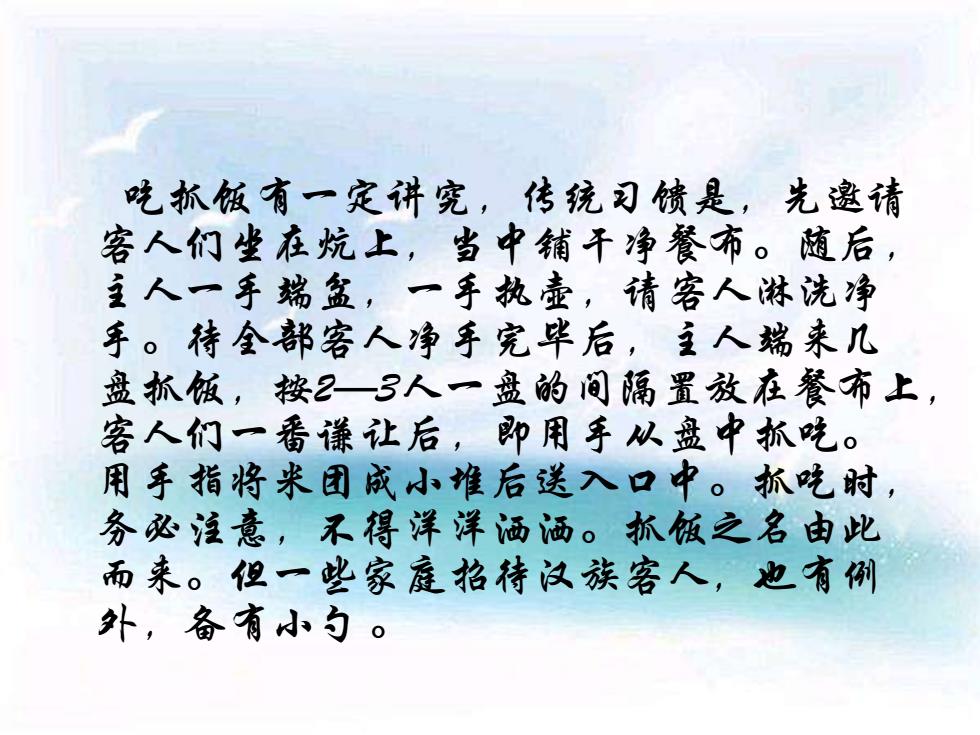 吃抓饭有一定讲究，传统习馈是，先邀请
客人们坐在炕上，当中铺干净餐布。随后，
主人一手端盆，一手执壶，请客人淋洗净
手。待全部客人净手完毕后，主人端来几
盘抓饭，按2—3人一盘的间隔置放在餐布上，
客人们一番谦让后，即用手从盘中抓吃。
用手指将米团成小堆后送入口中。抓吃时，
务必注意，不得洋洋洒洒。抓饭之名由此
而来。但一些家庭招待汉族客人，也有例
外，备有小勺。